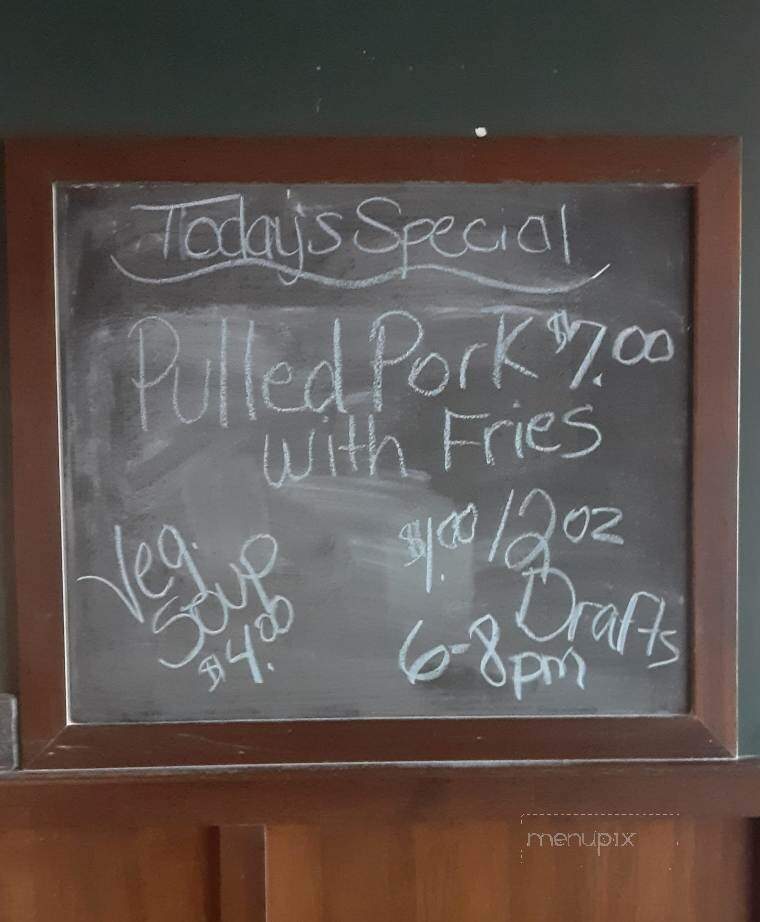 Today's Special
Pulled Pork $7.00
with Fries
Veg.
Soup
$4.00
$1.00 12oz
Drafts
6-8pm
menupix